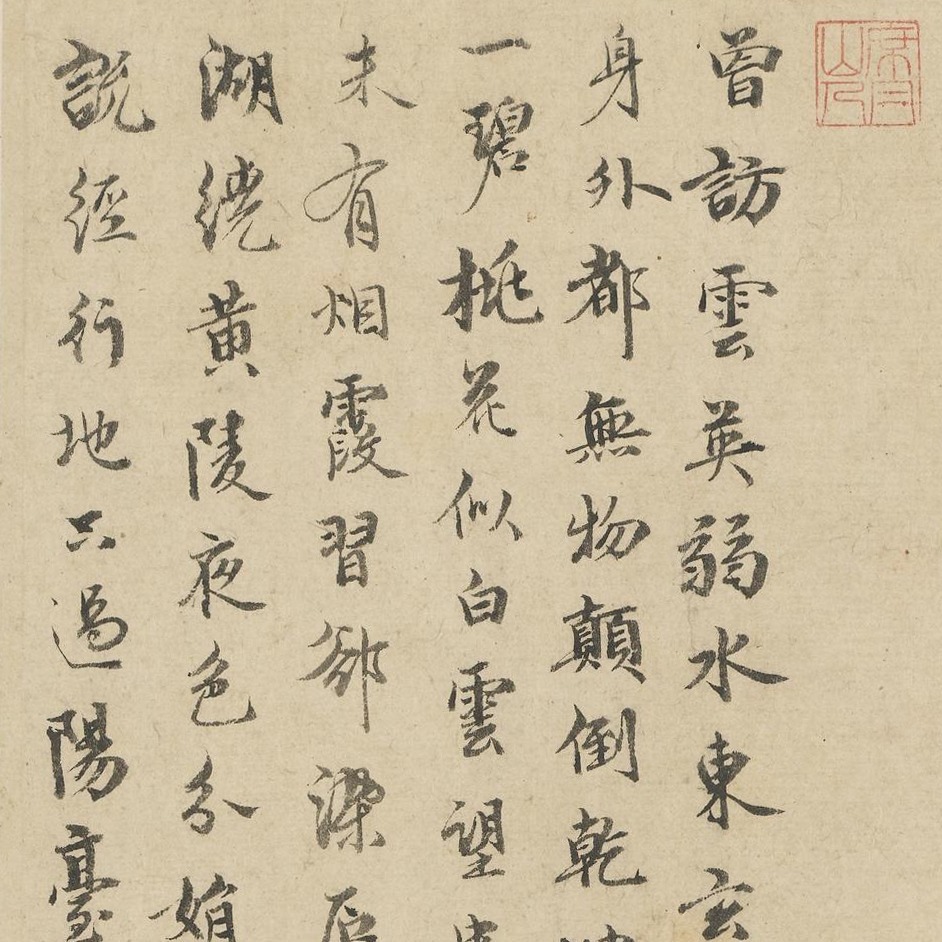 曾訪雲英弱水東玄
身外都無物顛倒乾
一碧桃花似白雲望
未有烟霞習郤染
湖繞黄陵夜色分娟
說經行地只過陽臺